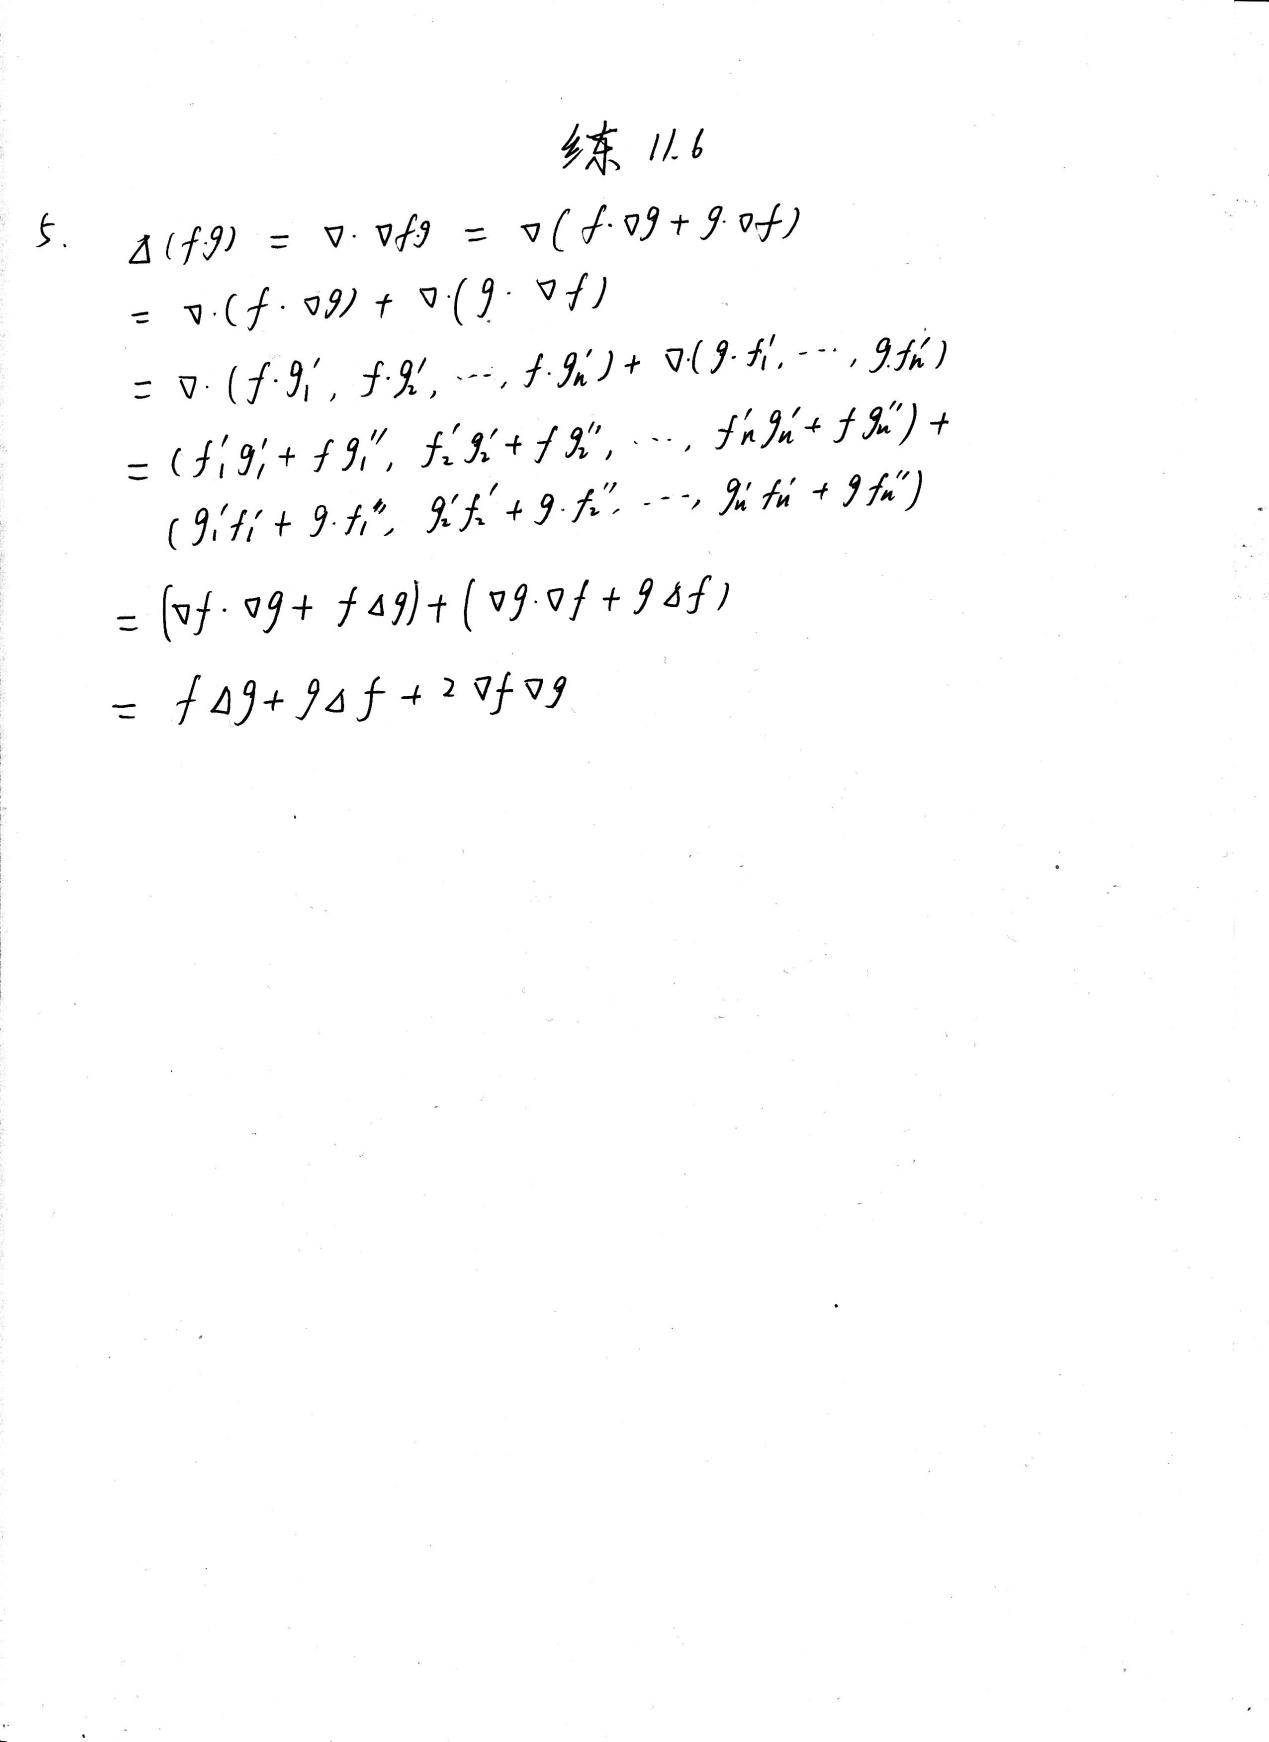 练 11.6
5. Δ(f·g) = ∇·∇f·g = ∇(f·∇g + g·∇f)
= ∇·(f·∇g) + ∇·(g·∇f)
= ∇·(f·g₁′, f·g₂′, ···, f·gₙ′) + ∇·(g·f₁′, ···, g·fₙ′)
= (f₁′g₁′ + f g₁″, f₂′g₂′ + f g₂″, ···, fₙ′gₙ′ + f gₙ″) +
(g₁′f₁′ + g·f₁″, g₂′f₂′ + g·f₂″, ···, gₙ′fₙ′ + g fₙ″)
= (∇f·∇g + fΔg) + (∇g·∇f + gΔf)
= fΔg + gΔf + 2∇f∇g